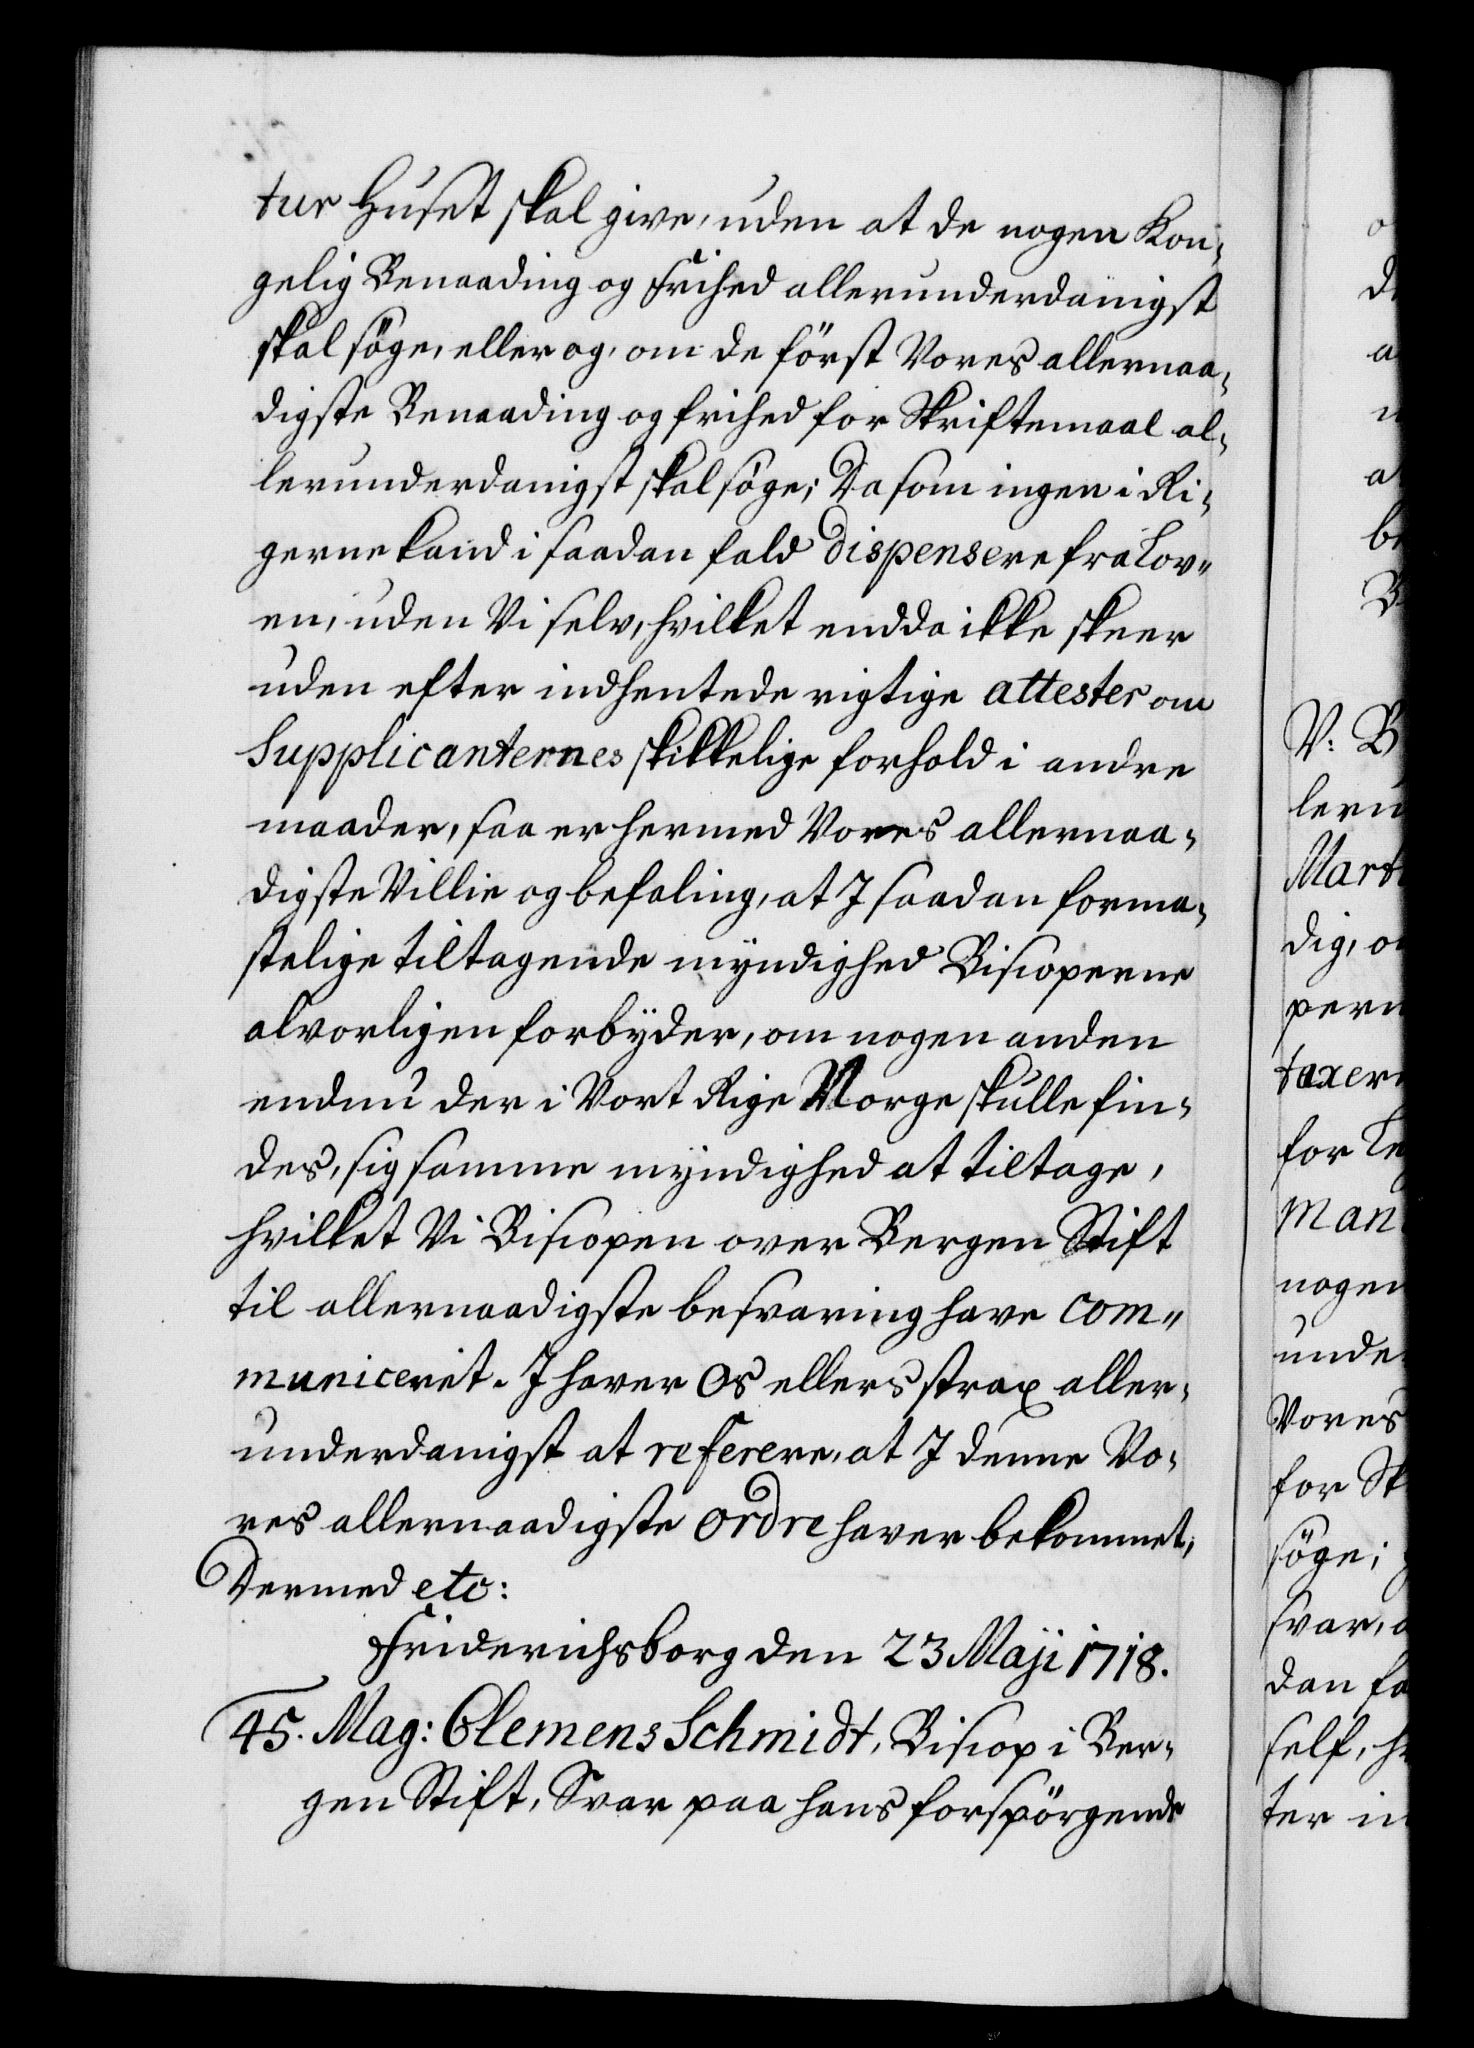 tur Huset skal give, uden at de nogen Kon-
gelig Benaading og Frihed allerunderdanigst
skal söge, eller og, om de först Vores allernaa-
digste Benaading og frihed for Skriftemaal al-
lerunderdanigst skal söge; Da som ingen i Ri-
gerne kand i saadan fald dispensere fra Lov-
en, uden Vi selv, hvilket endda ikke skeer
uden efter indhentede rigtige attester om
Supplicanternes skikkelige forhold i andre
maader, saa er hermed Vores allernaa-
digste Villie og befaling, at I saadan forma-
stelige tiltagende myndighed Bisioperne
alvorligen forbÿder, om nogen anden
endnu der i Vort Rige Norge skulle fin-
des, sig samme mÿndighed at tiltage,
hvilket Vi Bisiopen over Bergen Stift
til allernaadigste besvaring have com-
municerit. I haver Os ellers strax aller-
underdanigst at referere, at I denne Vo-
res allernaadigste Ordre haver bekommet,
Dermed etc:
Friderichsborg den 23 Maji 1718.
45. Mag: Clemens Schmidt, Bisiop i Ber-
gen Stift, Svar paa hans forspörgende
V: B
leru
Mart
dig, o
pern
taxere
for Le
man
nogen
unde
Vores
for Sk
söge;
svar, o
dan fa
self, h
ter in